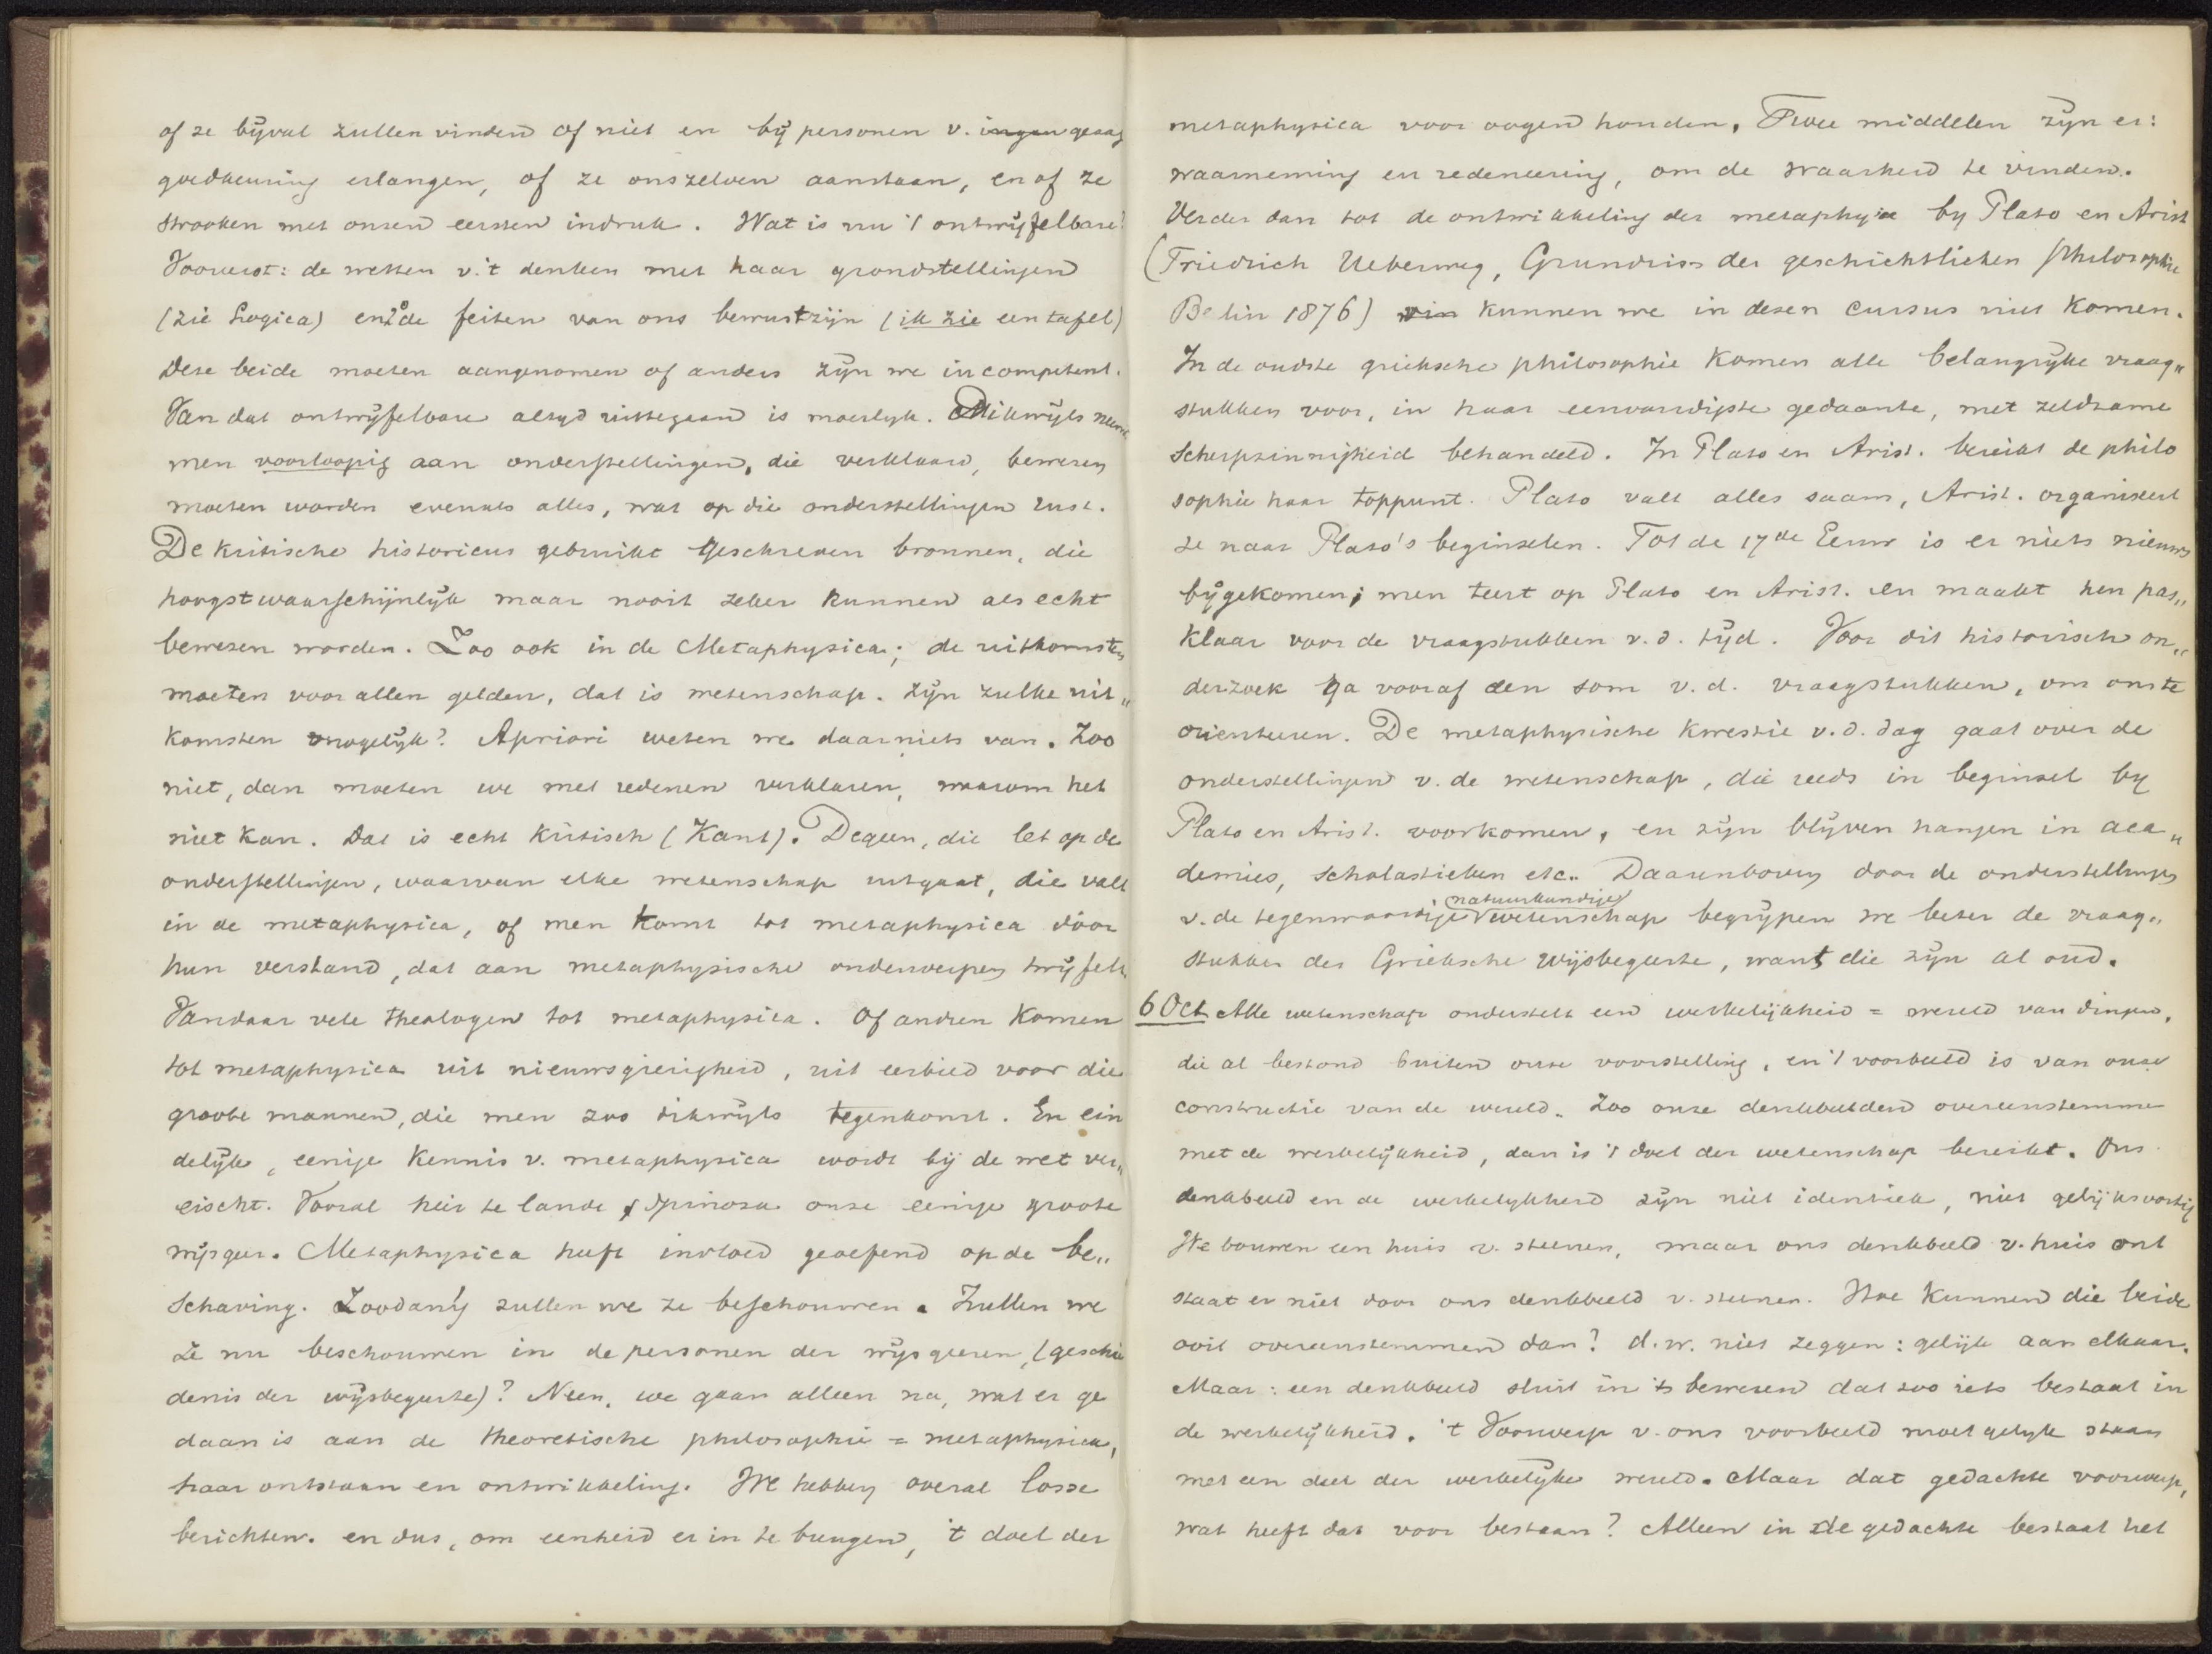 of ze bijval zullen vinden of niet en bij personen v. gezag
goedkeuring erlangen, of ze onszelven aanstaan, en of ze
strooken met onzen eersten indruk. Wat is nu 't ontwijfelbare?
Vooreerst: de wetten v. 't denken met haar grondstellingen
(zie Logica) en 2o de feiten van ons bewustzijn (ik zie een tafel)
Deze beide moeten aangenomen of anders zijn we incompetent.
Van dat ontwijfelbare altyd uittegaan is moeilyk. Dikwijls neemt
men voorloopig aan onderstellingen, die verklaard, bewezen
moeten worden evenals alles, wat op die onderstellingen rust.
De kritische historicus gebruikt geschreven bronnen, die
hoogstwaarschijnlijk maar nooit zeker kunnen als echt
bewezen worden. Zoo ook in de Metaphysica; de uitkomsten
moeten voor allen gelden, dat is wetenschap. Zijn zulke uit„
komsten mogelijk? Apriori weten we daar niets van. Zoo
niet, dan moeten we met redenen verklaren, waarom het
niet kan. Dat is echt kritisch (Kant). Degeen, die let op de
onderstellingen, waarvan elke wetenschap uitgaat, die valt
in de metaphysica, of men komt tot metaphysica dóor
hun verstand, dat aan metaphysische onderwerpen twijfelt.
Vandaar vele theologen tot metaphysica. Of andren komen
tot metaphysica uit nieuwsgierigheid, uit eerbied voor die
groote mannen, die men zoo dikwijls tegenkomt. En ein
delijk, eenige kennis v. metaphysica wordt bij de wet ver„
eischt. Vooral hier te lande Spinoza onze eenige groote
wijsgeer. Metaphysica heeft invloed geoefend op de be„
schaving. Zoodanig zullen we ze beschouwen. Zullen we
ze nu beschouwen in de personen der wijsgeeren, (geschie
denis der wijsbegeerte)? Neen, we gaan alleen na, wat er ge
daan is aan de theoretische philosophie = metaphysica,
haar ontstaan en ontwikkeling. We hebben overal losse
berichten. en dus, om eenheid er in te brengen, 't doel der
metaphysica voor oogen houden. Twee middelen zijn er:
waarneming en redeneering, om de waarheid te vinden.
Verder dan tot de ontwikkeling der metaphysica by Plato en Arist
(Friedrich Ueberweg, Grundriss der geschichtlichen Philosophie
Berlin 1876) kunnen we in dezen cursus niet komen.
In de oudste grieksche philosophie komen alle belangrijke vraag„
stukken voor, in haar eenvoudigste gedaante, met zeldzame
scherpzinnigheid behandeld. In Plato en Arist. bereikt de philo
sophie haar toppunt. Plato vat alles saam, Arist. organiseert
ze naar Plato's beginselen. Tot de 17de Eeuw is er niets nieuws
bijgekomen; men teert op Plato en Arist. en maakt hen pas„
klaar voor de vraagstukken v. d. tijd. Voor dit historisch on„
derzoek ga vooraf den som v. d. vraagstukken, om ons te
orienteeren. De metaphysische kwestie v. d. dag gaat over de
onderstellingen v. de wetenschap, die reeds in beginsel by
Plato en Arist. voorkomen, en zijn blijven hangen in aca„
demies, scholastieken etc.. Daarenboven door de onderstellingen
natuurkundige
v. de tegenwoordige wetenschap begrijpen we beter de vraag„
stukken der Grieksche wijsbegeerte, want die zijn al oud.
6 Oct Alle wetenschap onderstelt een werkelijkheid = wereld van dingen,
die al bestond buiten onze voorstelling, en 't voorbeeld is van onze
constructie van de wereld. Zoo onze denkbeelden overeenstemmen
met de werkelijkheid, dan is 't doel der wetenschap bereikt. Ons
denkbeeld en de werkelykheid zijn niet identiek, niet gelijksoortig
We bouwen een huis v. steenen, maar ons denkbeeld v. huis ont
staat er niet door ons denkbeeld v. steenen. Hoe kunnen die beide
ooit overeenstemmen dan? d.w. niet zeggen: gelijk aan elkaar.
Maar: een denkbeeld sluit in 't beweren dat zoo iets bestaat in
de werkelijkheid. 't Voorwerp v. ons voorbeeld moet gelyk staan
met een deel der werkelijke wereld. Maar dat gedachte voorwerp,
wat heeft dat voor bestaan? Alleen in de gedachte bestaat het